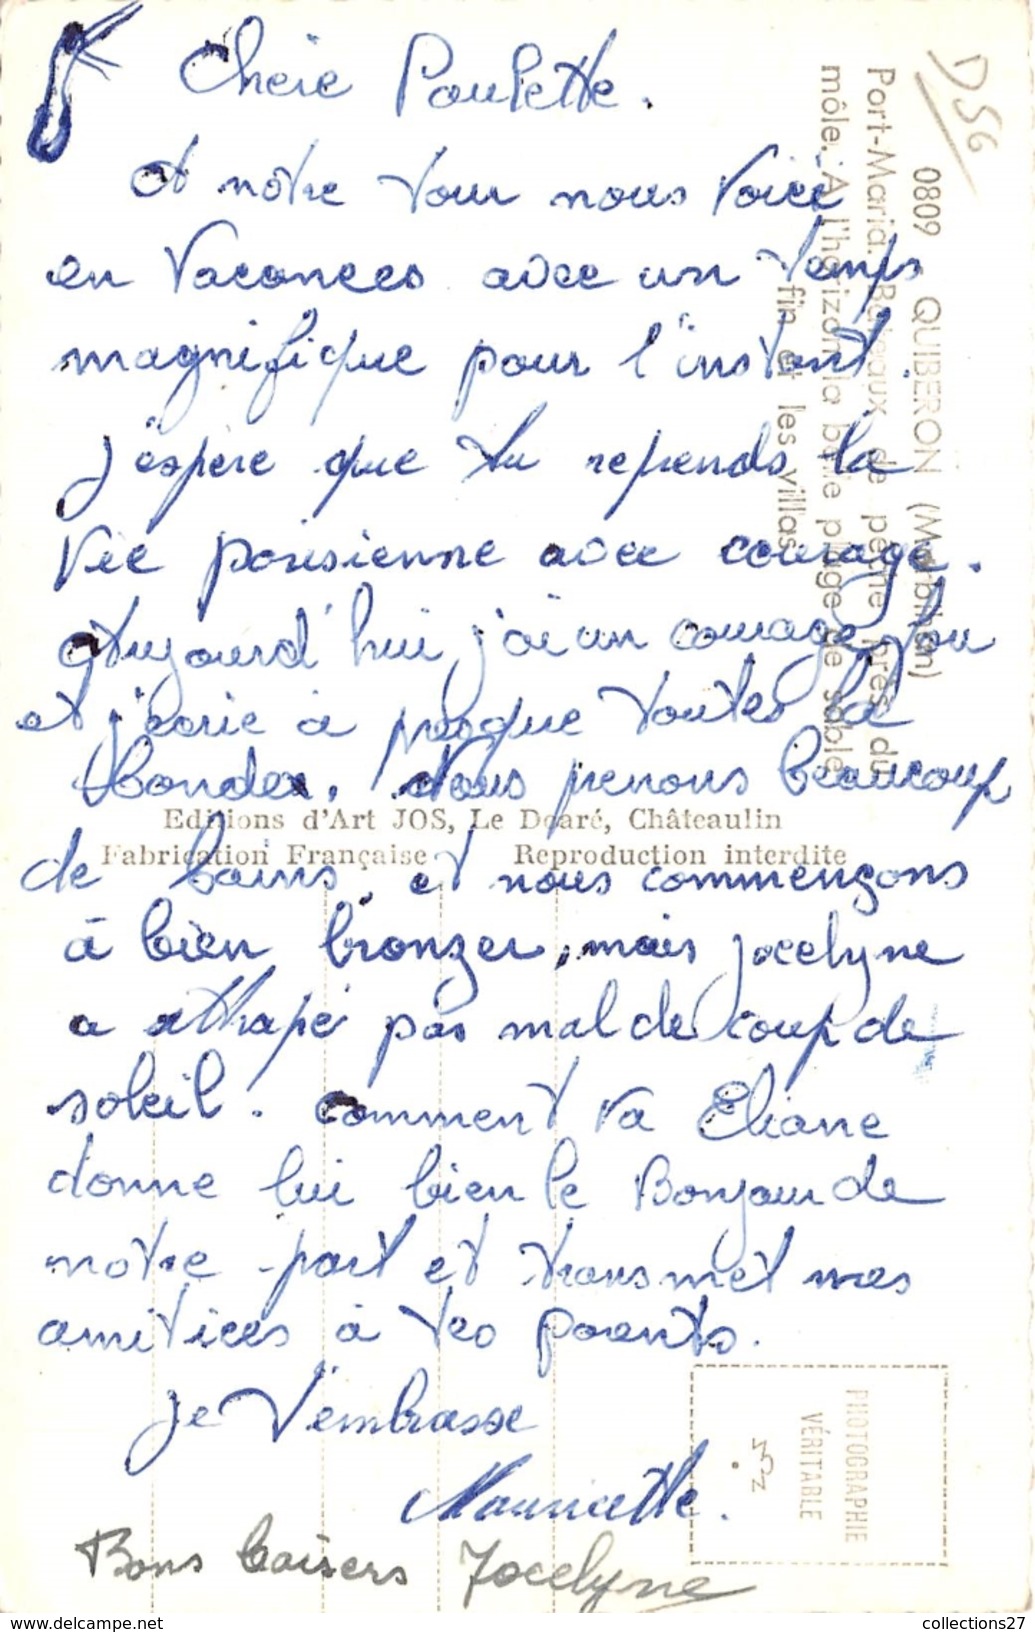 Chère Paulette.
et notre tour nous voici
en vacances avec un temps
magnifique pour l'instant.
j'espère que tu reprends la
vie parisienne avec courage.
Aujourd'hui j'ai un courage fou
et j'écris à presque toutes la
bandes. Nous prenons beaucoup
de bains, et nous commençons
à bien bronzer, mais jocelyne
a attrapé pas mal de coup de
soleil. comment va Eliane
donne lui bien le Bonjour de
notre part et transmet mes
amitiées à tes parents.
je t'embrasse
Mauricette.
Bons baisers Jocelyne
D56
0809 - QUIBERON (Morbihan)
Port-Maria. Bateaux de pêche près du
môle. A l'horizon la belle plage de sable
fin et les villas
Editions d'Art JOS, Le Doaré, Châteaulin
Fabrication Française Reproduction interdite
PHOTOGRAPHIE
VÉRITABLE
collections27